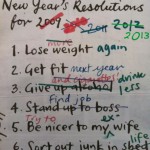 New Year's Resolutions
for 2009 2011 2012
2013
more
1. Lose weight again
2. Get fit next year
drink
3. Give up alcohol less
Find job
4. Stand up to boss
Try to ex
5. Be nicer to my wife
life
6. Sort out junk in shed